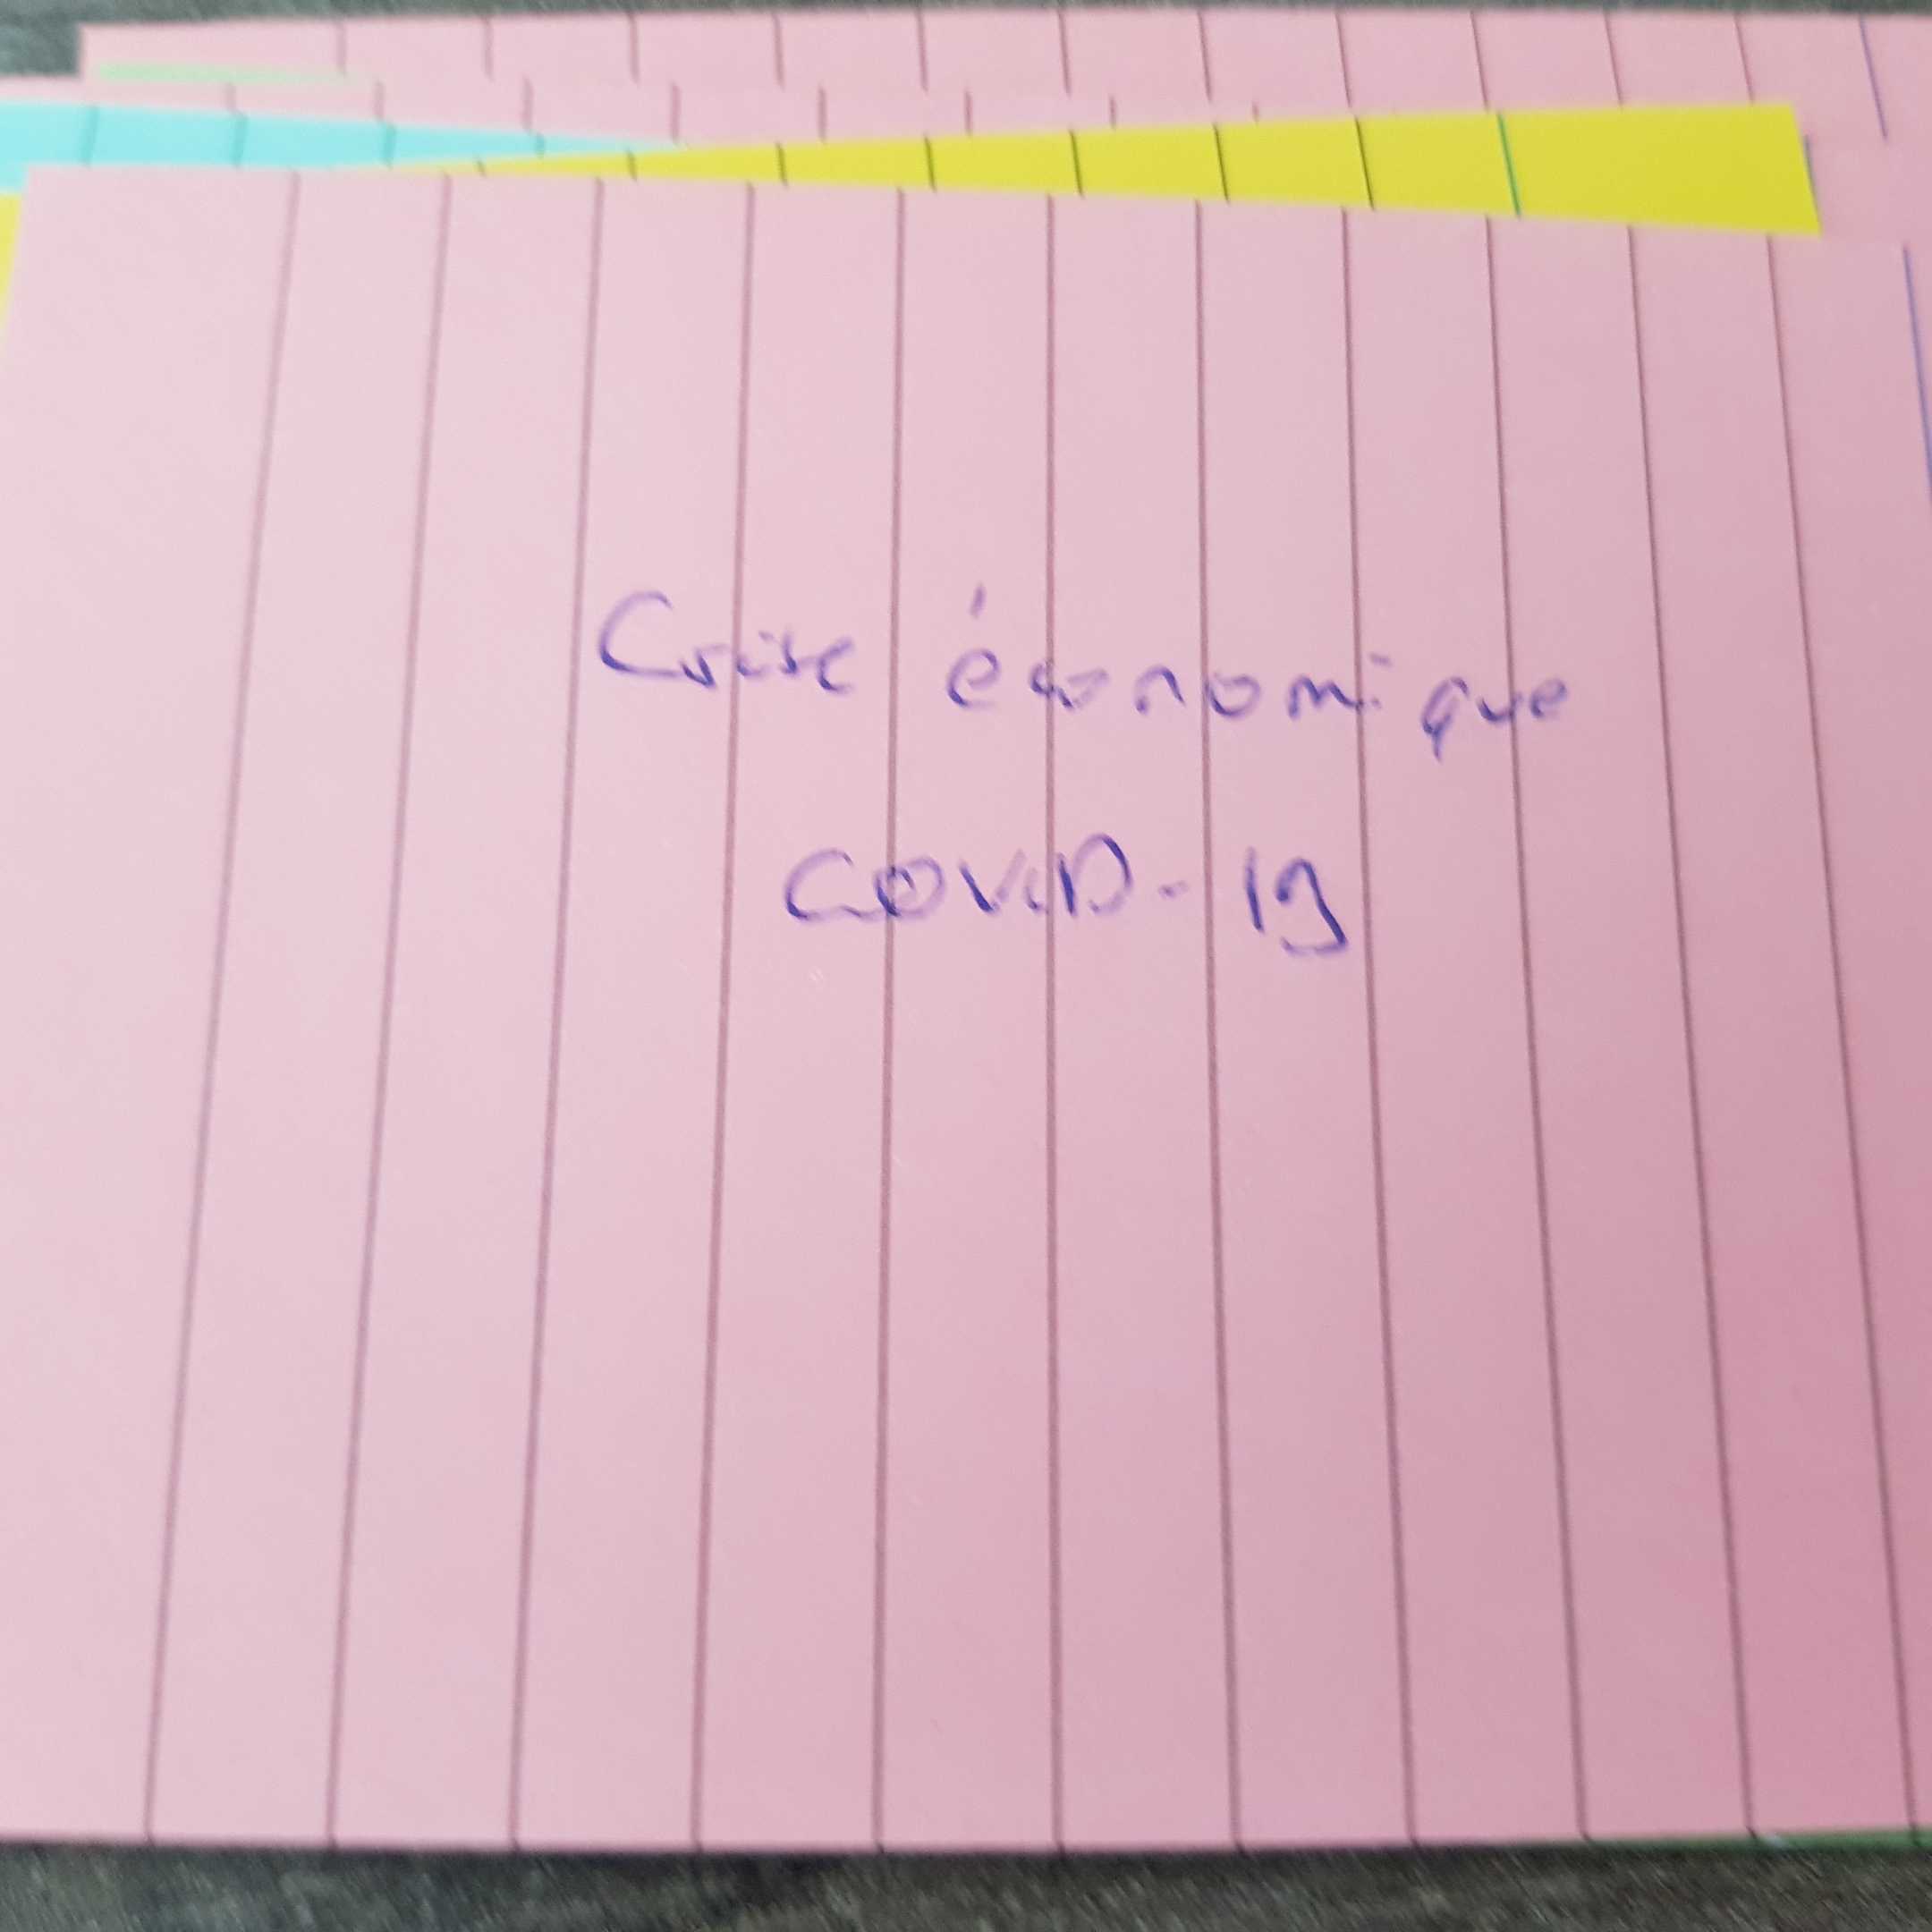 Crise économique
COVID-19